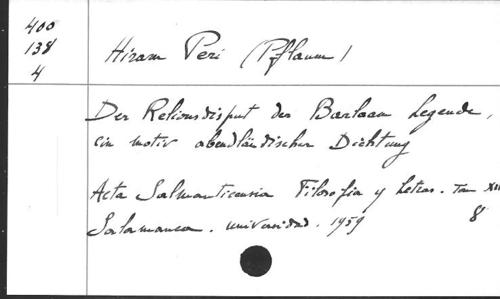 400
138
4
Hiram Peri (Pflaum)
Der Relionsdisput der Barlaam Legende,
ein motiv abendländischer Dichtung
Acta Salmanticensia Filosofia y Letras. Tom
Salamanca. Universidad. 1959 8